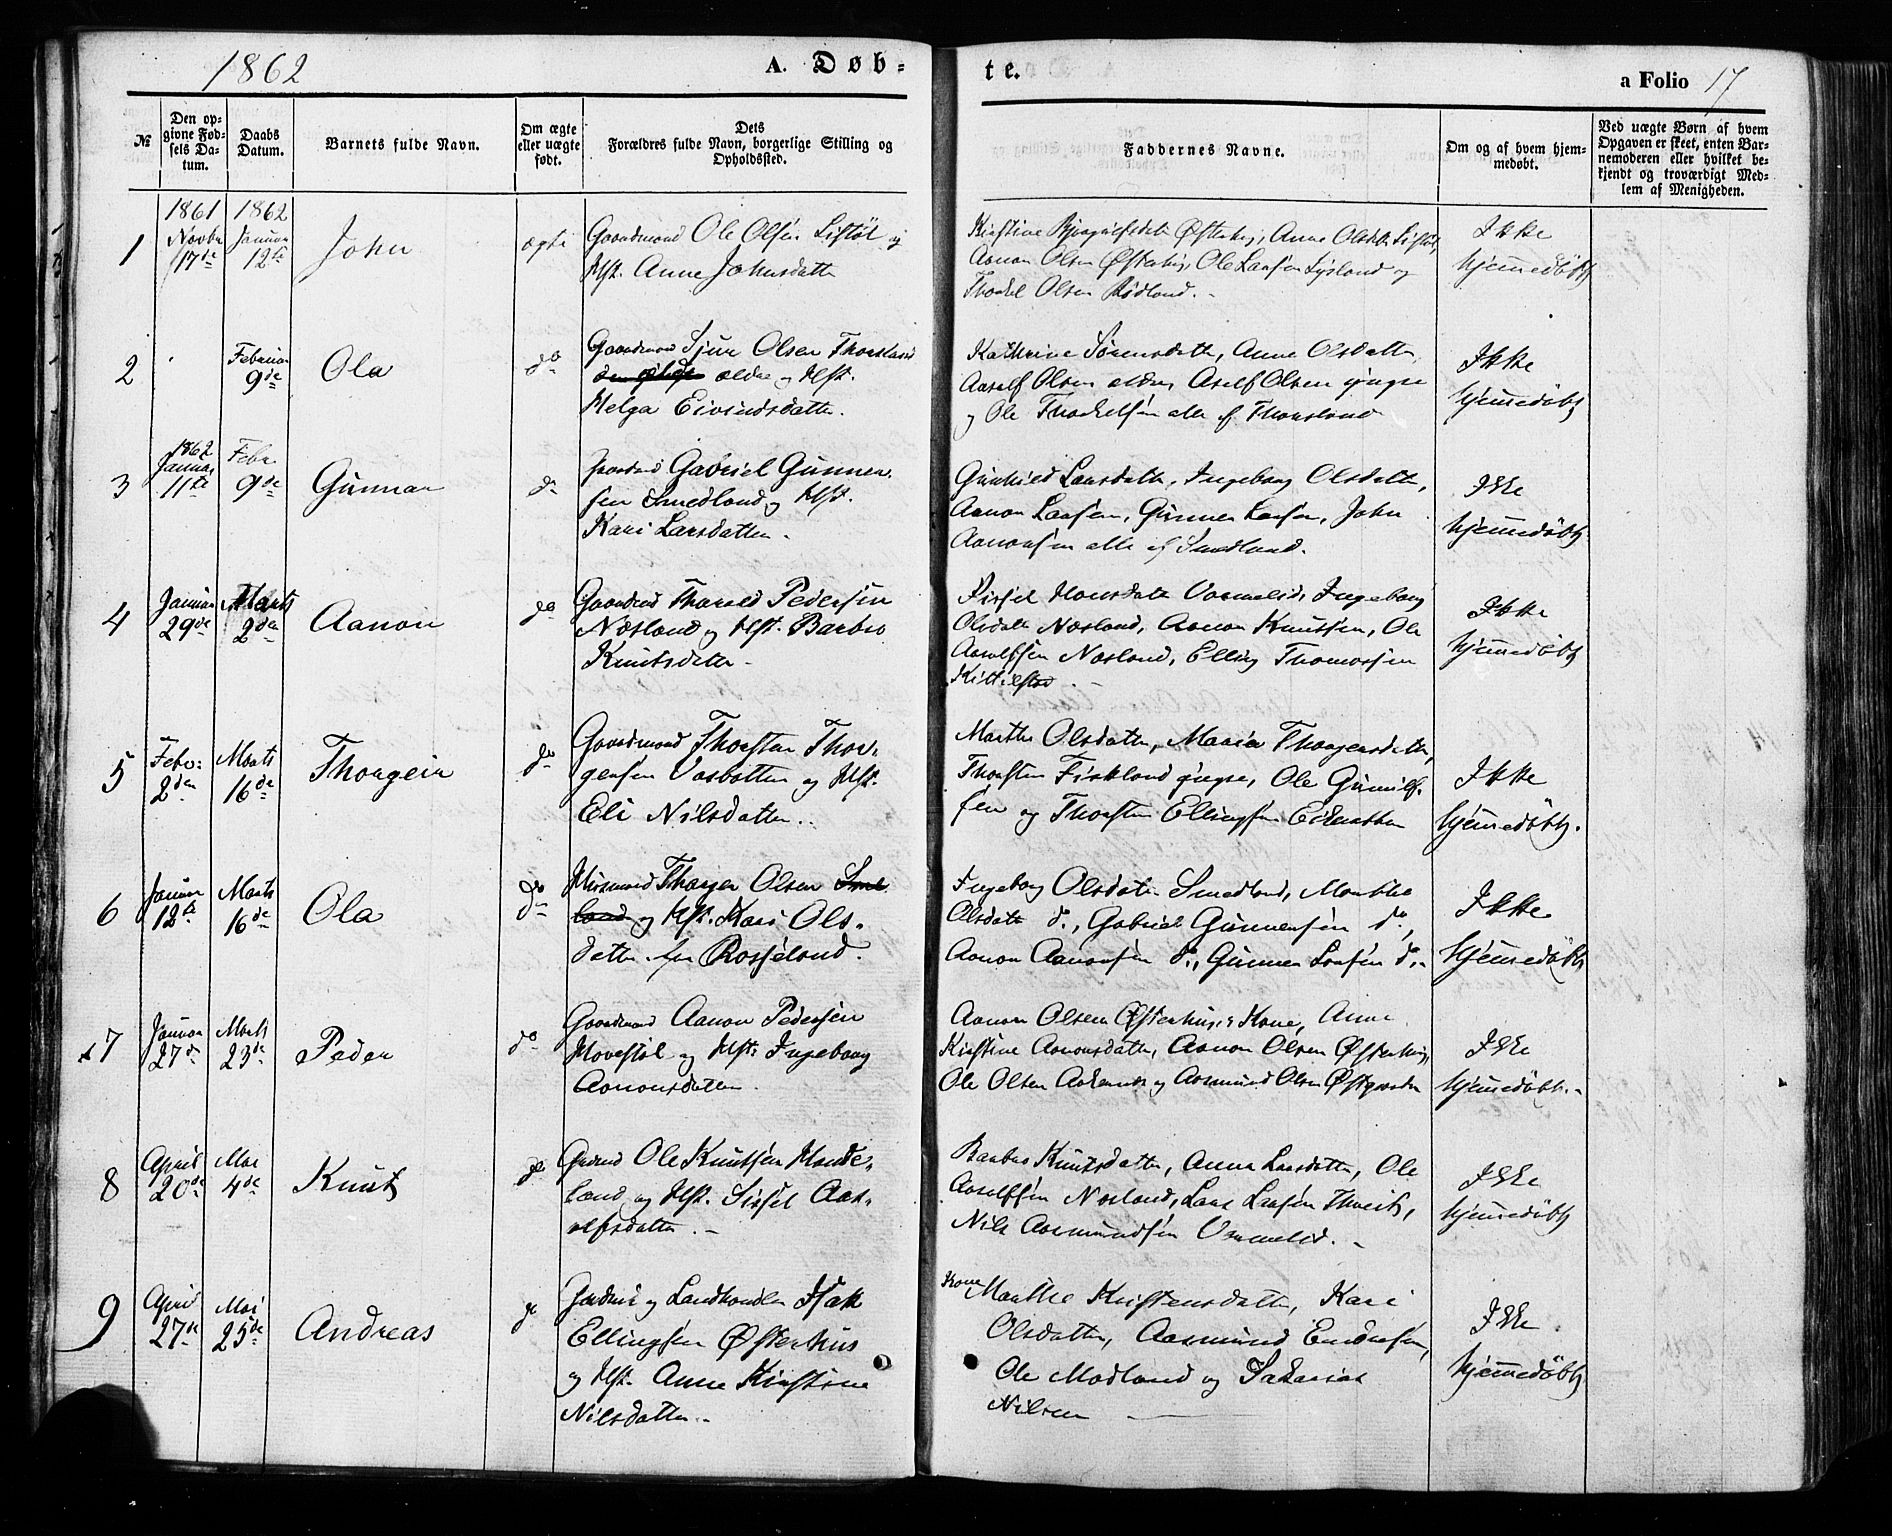 1862
A. Døb-
te.
a Folio 17
№
Den op-
givne Fød-
sels Da-
tum.
Daabs
Datum.
Barnets fulde Navn.
Om ægte
eller uægte
født.
Dets
Forældres fulde Navn, borgerlige Stilling og
Opholdssted.
Faddernes Navne.
Om og af hvem hjem-
medøbt.
Ved uægte Børn af hvem
Opgaven er skeet, enten Bar-
nemoderen eller hvilket be-
kjendt og troværdigt Med-
lem af Menigheden.
1
1861
Novbr
17de
1862
Januar
12te
John
ægte
Gaardmand Ole Olsen Liftöl og
Hst. Anne Johnsdatter
Kirstine Osterhus, Anne Olsdatter Liftöl,
Aanon Olsen Østerhus, Ole Larsen Lysland og
Thorkel Olsen Rödland.-
Ikke
hjemmedøbt
2
Februar
9de
Ola
do
Gaardmand Sjur Olsen Thorsland
ældre og Hst.
Helga Eivindsdatter.
Kathrine Sörensdatter, Anne Olsdatter
Aasolf Olsen ældre, Aasolf Olsen yngre
og Ole Thorkelsen alle af Thorsland
Ikke
hjemmedøbt
3
1862
Januar
11te
Febr.
9de
Gunnar
do
Gabriel Gunner-
sen Smedland og Hst.
Kari Larsdatter.
Gunhild Larsdatter, Ingeborg Olsdatter,
Aanon Larsen, Gunner Larsen, John
Aanonsen alle af Smedland.
Ikke
hjemmedøbt
4
Januar
29de
Marts
2den
Aanon
do
Gaardmd Tharald Pedersen
Næsland og Hst. Barbro
Knutsdatter
Sirsel Hansdatter Vormelid, Ingeborg
Olsdatter Næsland, Aanon Knutsen, Ole
Aasolfsen Næsland, Elling Thomassen
Kittilstad
Ikke
hjemmedøbt
5
Febr:
2den
Marts
16de
Thorgeir
do
Gaardmand Thorsten Thor-
gersen Vasbotten og Hst.
Eli Nilsdatter.
Marthe Olsdatter, Maria Thorgersdatter,
Thorsten Fiskland yngre, Ole Gunulf-
sen og Thorsten Ellingsen
Ikke
hjemmedøbt.
6
Januar
12te
Marts
16de
Ola
do
Huusmand Thorger Olsen Smed
land og Hst. Kari Ols-
datter fra Rosseland.
Ingeborg Olsdatter Smedland, Marthe
Olsdatter do, Gabriel Gunnersen do,
Aanon Aanonsen do, Gunner Larsen do.
Ikke
hjemmedøbt
7
Januar
27de
Marts
23de
Peder
do
Gaardmand Aanon Pedersen
Hovestöl og Hst: Ingeborg
Aanonsdatter.
Aanon Olsen Østerhus's Kone, Anne
Kirstine Aanonsdatter, Aanon Olsen Østerhus,
Ole Olsen og Aasmund Olsen Østgaarden
Ikke
hjemmedøbt.-
8
April
20de
Mai
4de
Knut
do
Ole Knutsen Hande-
land og Hst. Sirsel Aas-
olfsdatter.-
Barbro Knutsdatter, Anne Larsdatter, Ole
Aasolfsen Næsland, Lars Larsen Thveit,
Nils Aasmundsen Vormelid.-
Ikke
hjemmedøbt
9
April
27de
Mai
25de
Andreas
do
og Landhandler Isak
Ellingsen Østerhus
og Hst. Anne Kirstine
Nilsdatter.-
Kone Marthe Kristensdatter, Kari
Olsdatter, Aasmund
Ole Modland og Sakarias
Nilsen
Ikke
hjemmedøbt